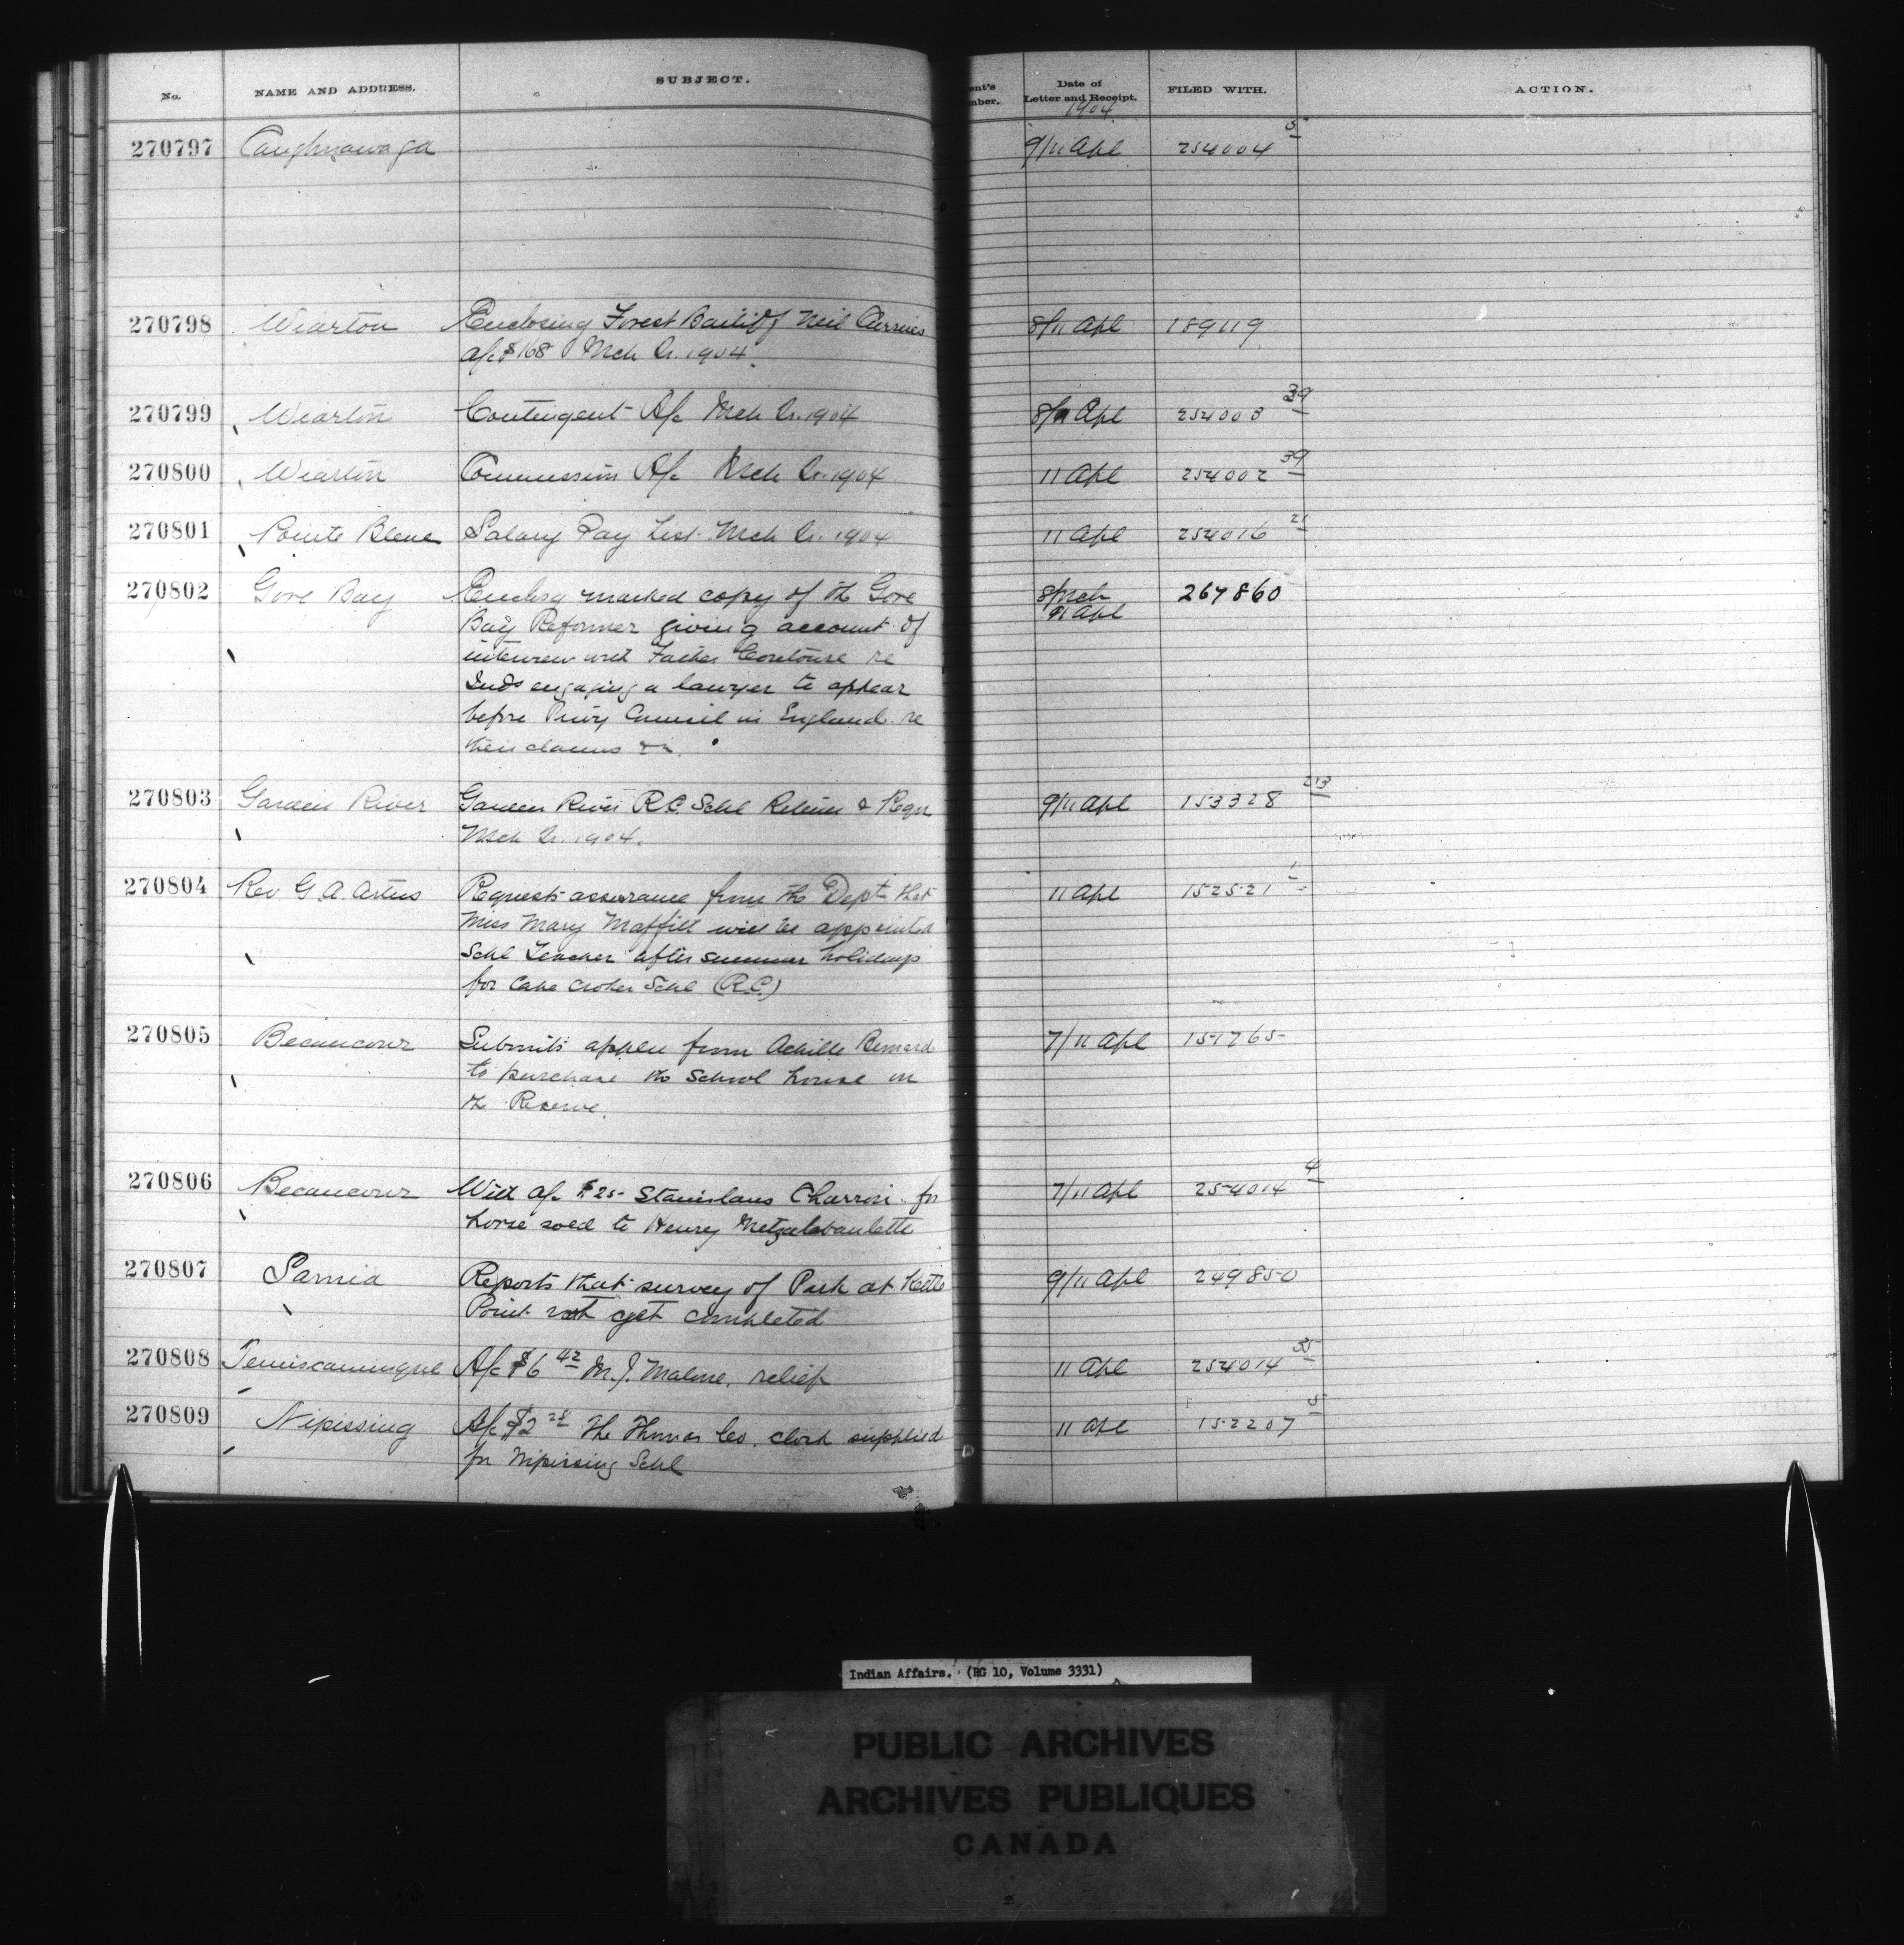 No. NAME AND ADDRESS. SUBJECT. ent's mber. Date of Letter and Receipt. FILED WITH. ACTION.
1904
270797 Caughnawaga 9/11 Apl 254004 5
270798 Wiarton Enclosing Forest Bailiff Neil 8/11 Apl 189119
a/c $168 Mch Qr. 1904.
270799 Wiarton Contingent A/c Mch Qr. 1904 8/11 Apl 254003 39
270800 Wiarton Commission A/c Mch Qr. 1904 11 Apl 254002 39
270801 Pointe Bleue Salary Pay List Mch Qr. 1904 11 Apl 254016 21
270802 Gore Bay Enclosg marked copy of th Gore 8/Mch 267860
Bay Reformer giving account of 11 Apl
interview with Father re
Inds engaging a lawyer to appear
before Privy Council in England re
their claims &c.
270803 Garden River Garden River R.C. Schl Return & Regr 9/11 Apl 153328 213
Mch Qr. 1904.
270804 Rev G. A. Artus Requests assurance from the Dept that 11 Apl 152521 1
Miss Mary Moffitt will be appointed
Schl Teacher after summer holidays
for Cape Croker Schl (R.C.)
270805 Becancour Submits appln from Achille Bernard 7/11 Apl 151765
to purchase the School house on
th Reserve.
270806 Becancour With a/c $25 Stanislaus Charron for 7/11 Apl 254014 4
horse sold to Henry
270807 Sarnia Reports that survey of Park at Kettle 9/11 Apl 249850
Point not yet completed
270808 Temiscamingue A/c $6 42 M. J. Malone, relief 11 Apl 254014 35
270809 Nipissing A/c $2 28 The Thomas Co. clock supplied 11 Apl 152207 5
for Nipissing Schl
Indian Affairs. (RG 10, Volume 3331)
PUBLIC ARCHIVES
ARCHIVES PUBLIQUES
CANADA